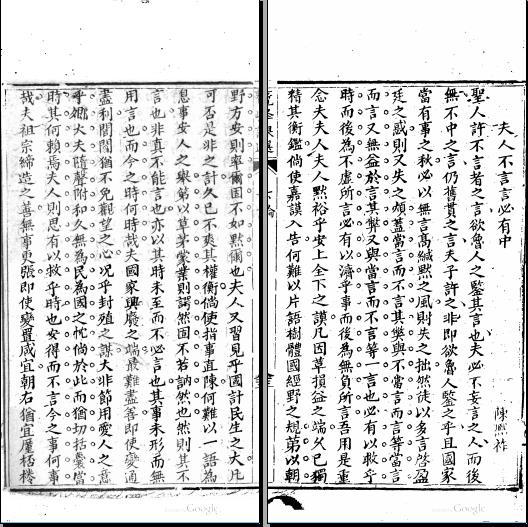 夫人不言言必有中
陳熙祚
聖人許不言者之言欲魯人之鑒其言也夫必不妄言之人而後
無不中之言仍舊貫之言夫子許之非即欲魯人鑒之乎且國家
當有事之秋必以無言高緘默之風則失之拙然徒以多言啓盈
廷之惑則又失之煩蓋當言而不言其弊與不當言而言等當言
而言又無益於言其弊又與當言而不言等一言也必有以救乎
時而後為不虛所言必有以濟乎事而後為無負所言吾用是重
念夫夫人夫人默裕乎安上全下之謨凡因草損益之端久已獨
精其衡鑑倘使嘉謨入告何難以片語樹體國經野之規第以朝
野方安則率爾固不如默爾也夫人又習見乎國計民生之大凡
可否是非之計久已不爽其權衡倘使指事直陳何難以一語為
息事安人之舉第以草茅蒙業則諤然固不若訥然也然則其不
言也非真不能言也亦以其時未至而不必言也其事未形而無
用言也而今之時何時哉夫國家興廢之端最難盡善即使變通
盡利閭閻猶不免觀望之心况乎封殖之謀大非節用愛人之意
乎烟火夫隨聲附和久無為民為國之忱倘於此而猶切括囊當
時其何賴焉夫人則思有以救乎時也安得而不言今之事何事
哉夫祖宗締造之善無事更張即使變置咸宜朝右猶宜屢格搽